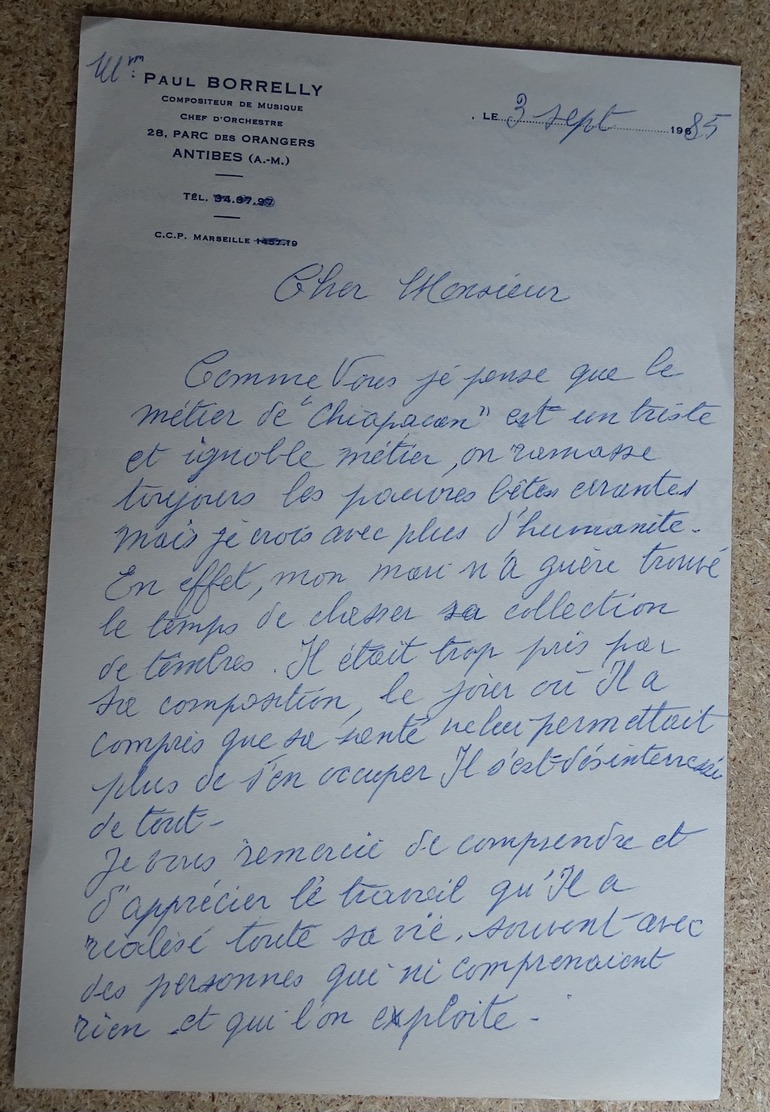 Mme PAUL BORRELLY
COMPOSITEUR DE MUSIQUE
CHEF D'ORCHESTRE
28, PARC DES ORANGERS
ANTIBES (A.-M.)
TÉL. 34.37.97
C.C.P. MARSEILLE 1457.19
. LE 3 sept 1985
Cher Monsieur
Comme Vous je pense que le
métier de "Chiapacan" est un triste
et ignoble métier, on ramasse
toujours les pauvres bêtes errantes
mais je crois avec plus d'humanité.
En effet, mon mari n'a guère trouvé
le temps de classer sa collection
de timbres. Il était trop pris par
sa composition, le jour où Il a
compris que sa santé ne lui permettait
plus de s'en occuper Il s'est désinterressé
de tout -
Je vous remercie de comprendre et
d'apprécier le travail qu'Il a
réalisé toute sa vie, souvent avec
des personnes qui ni comprenaient
rien et qui l'on exploite -